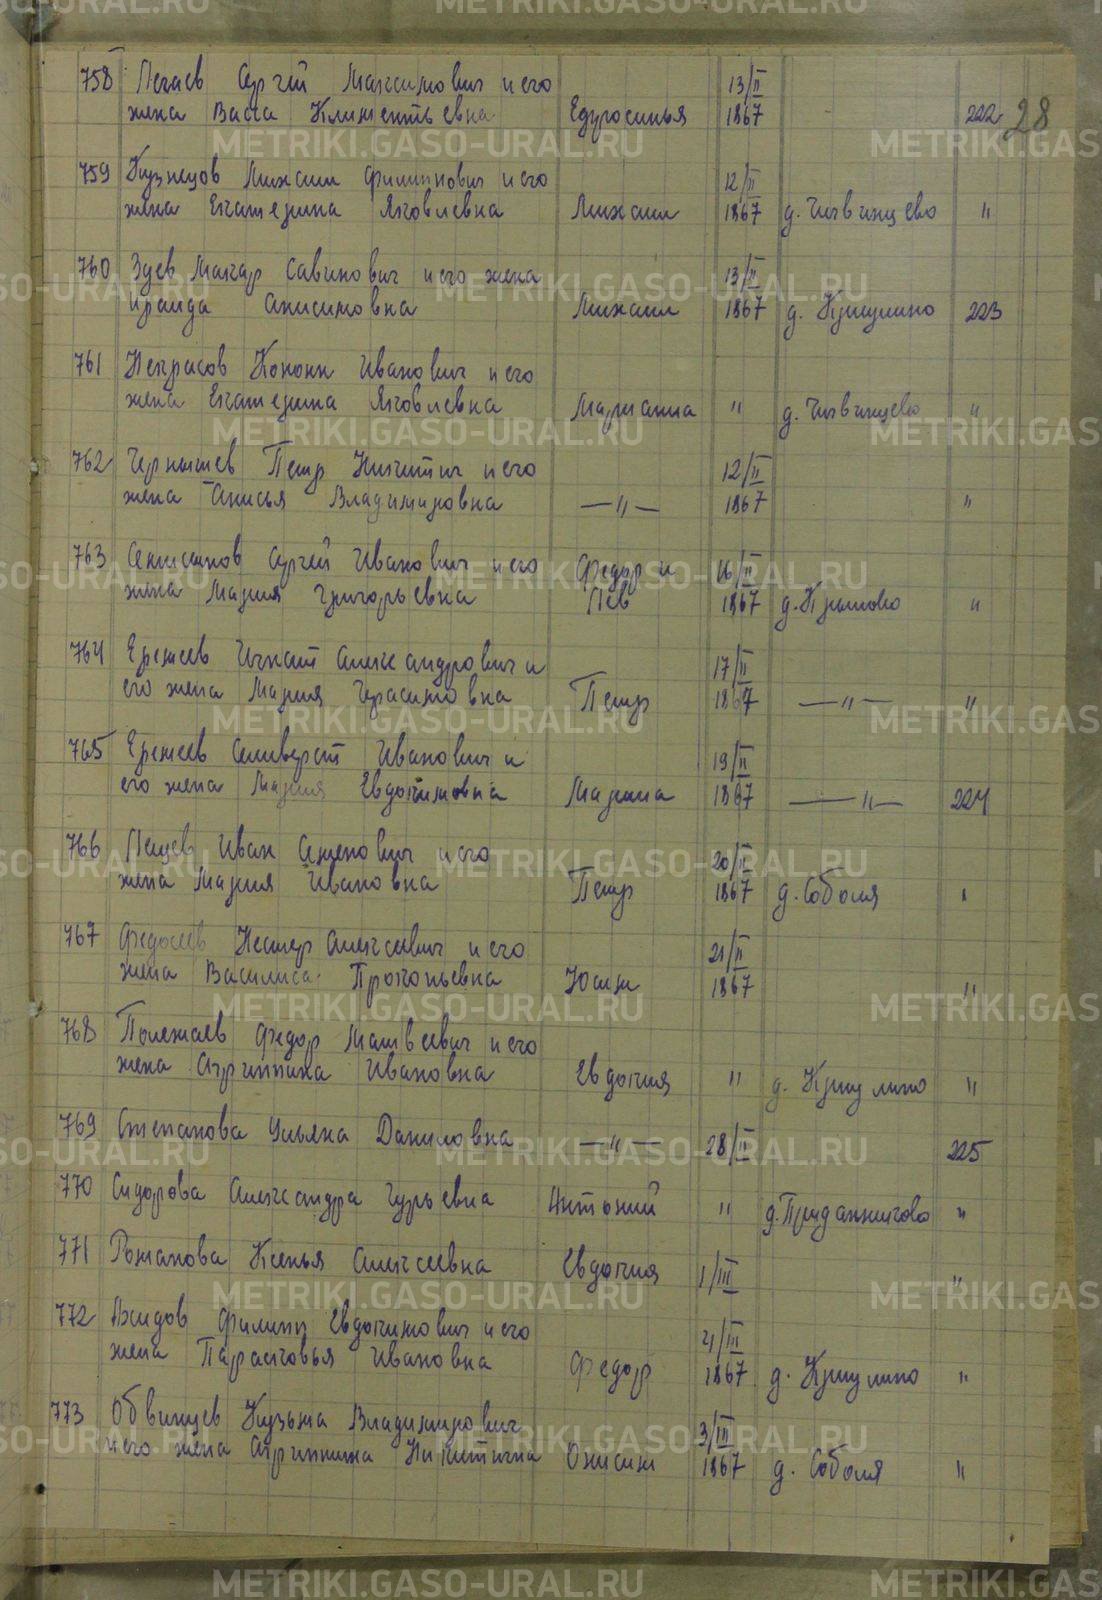 28
758 Пегаев Сергей Максимович и его 13/II
жена Васса Климентьевна Ефросинья 1867 222
759 Кузнецов Михаил Филиппович и его 12/II
жена Екатерина Яковлевна Михаил 1867 д. Чивинцево "
760 Зуев Макар Савинович и его жена 13/II
Ираида Анисимовна Михаил 1867 д. Криулино 223
761 Некрасов Конон Иванович и его
жена Екатерина Яковлевна Марианна " д. Чивинцево "
762 Чернышев Петр Никитич и его 12/II
жена Анисья Владимировна —"— 1867 "
763 Сенисанов Сергей Иванович и его Федор и 16/II
жена Мария Григорьевна Лев 1867 д. Крылово "
764 Ергеев Игнат Александрович и 17/II
его жена Мария Герасимовна Петр 1867 —"— "
765 Ергеев Селиверст Иванович и 19/II
его жена Мария Евдокимовна Марина 1867 —"— 224
766 Пещев Иван Семенович и его 20/II
жена Мария Ивановна Петр 1867 д. Соболя "
767 Федосеев Нестер Алексеевич и его 21/II
жена Василиса Прокопьевна Юлия 1867 "
768 Полежаев Федор Матвеевич и его
жена Агриппина Ивановна Евдокия " д. Криулино "
769 Степанова Ульяна Даниловна —"— 28/II 225
770 Сидорова Александра Гурьевна Антоний " д. Приданниково "
771 Романова Ксенья Алексеевна Евдокия 1/III "
772 Вшидов Филипп Евдокимович и его 4/III
жена Парасковья Ивановна Федор 1867 д. Криулино "
773 Обвинцев Кузьма Владимирович 3/III
и его жена Агриппина Никитична Онисим 1867 д. Соболя "